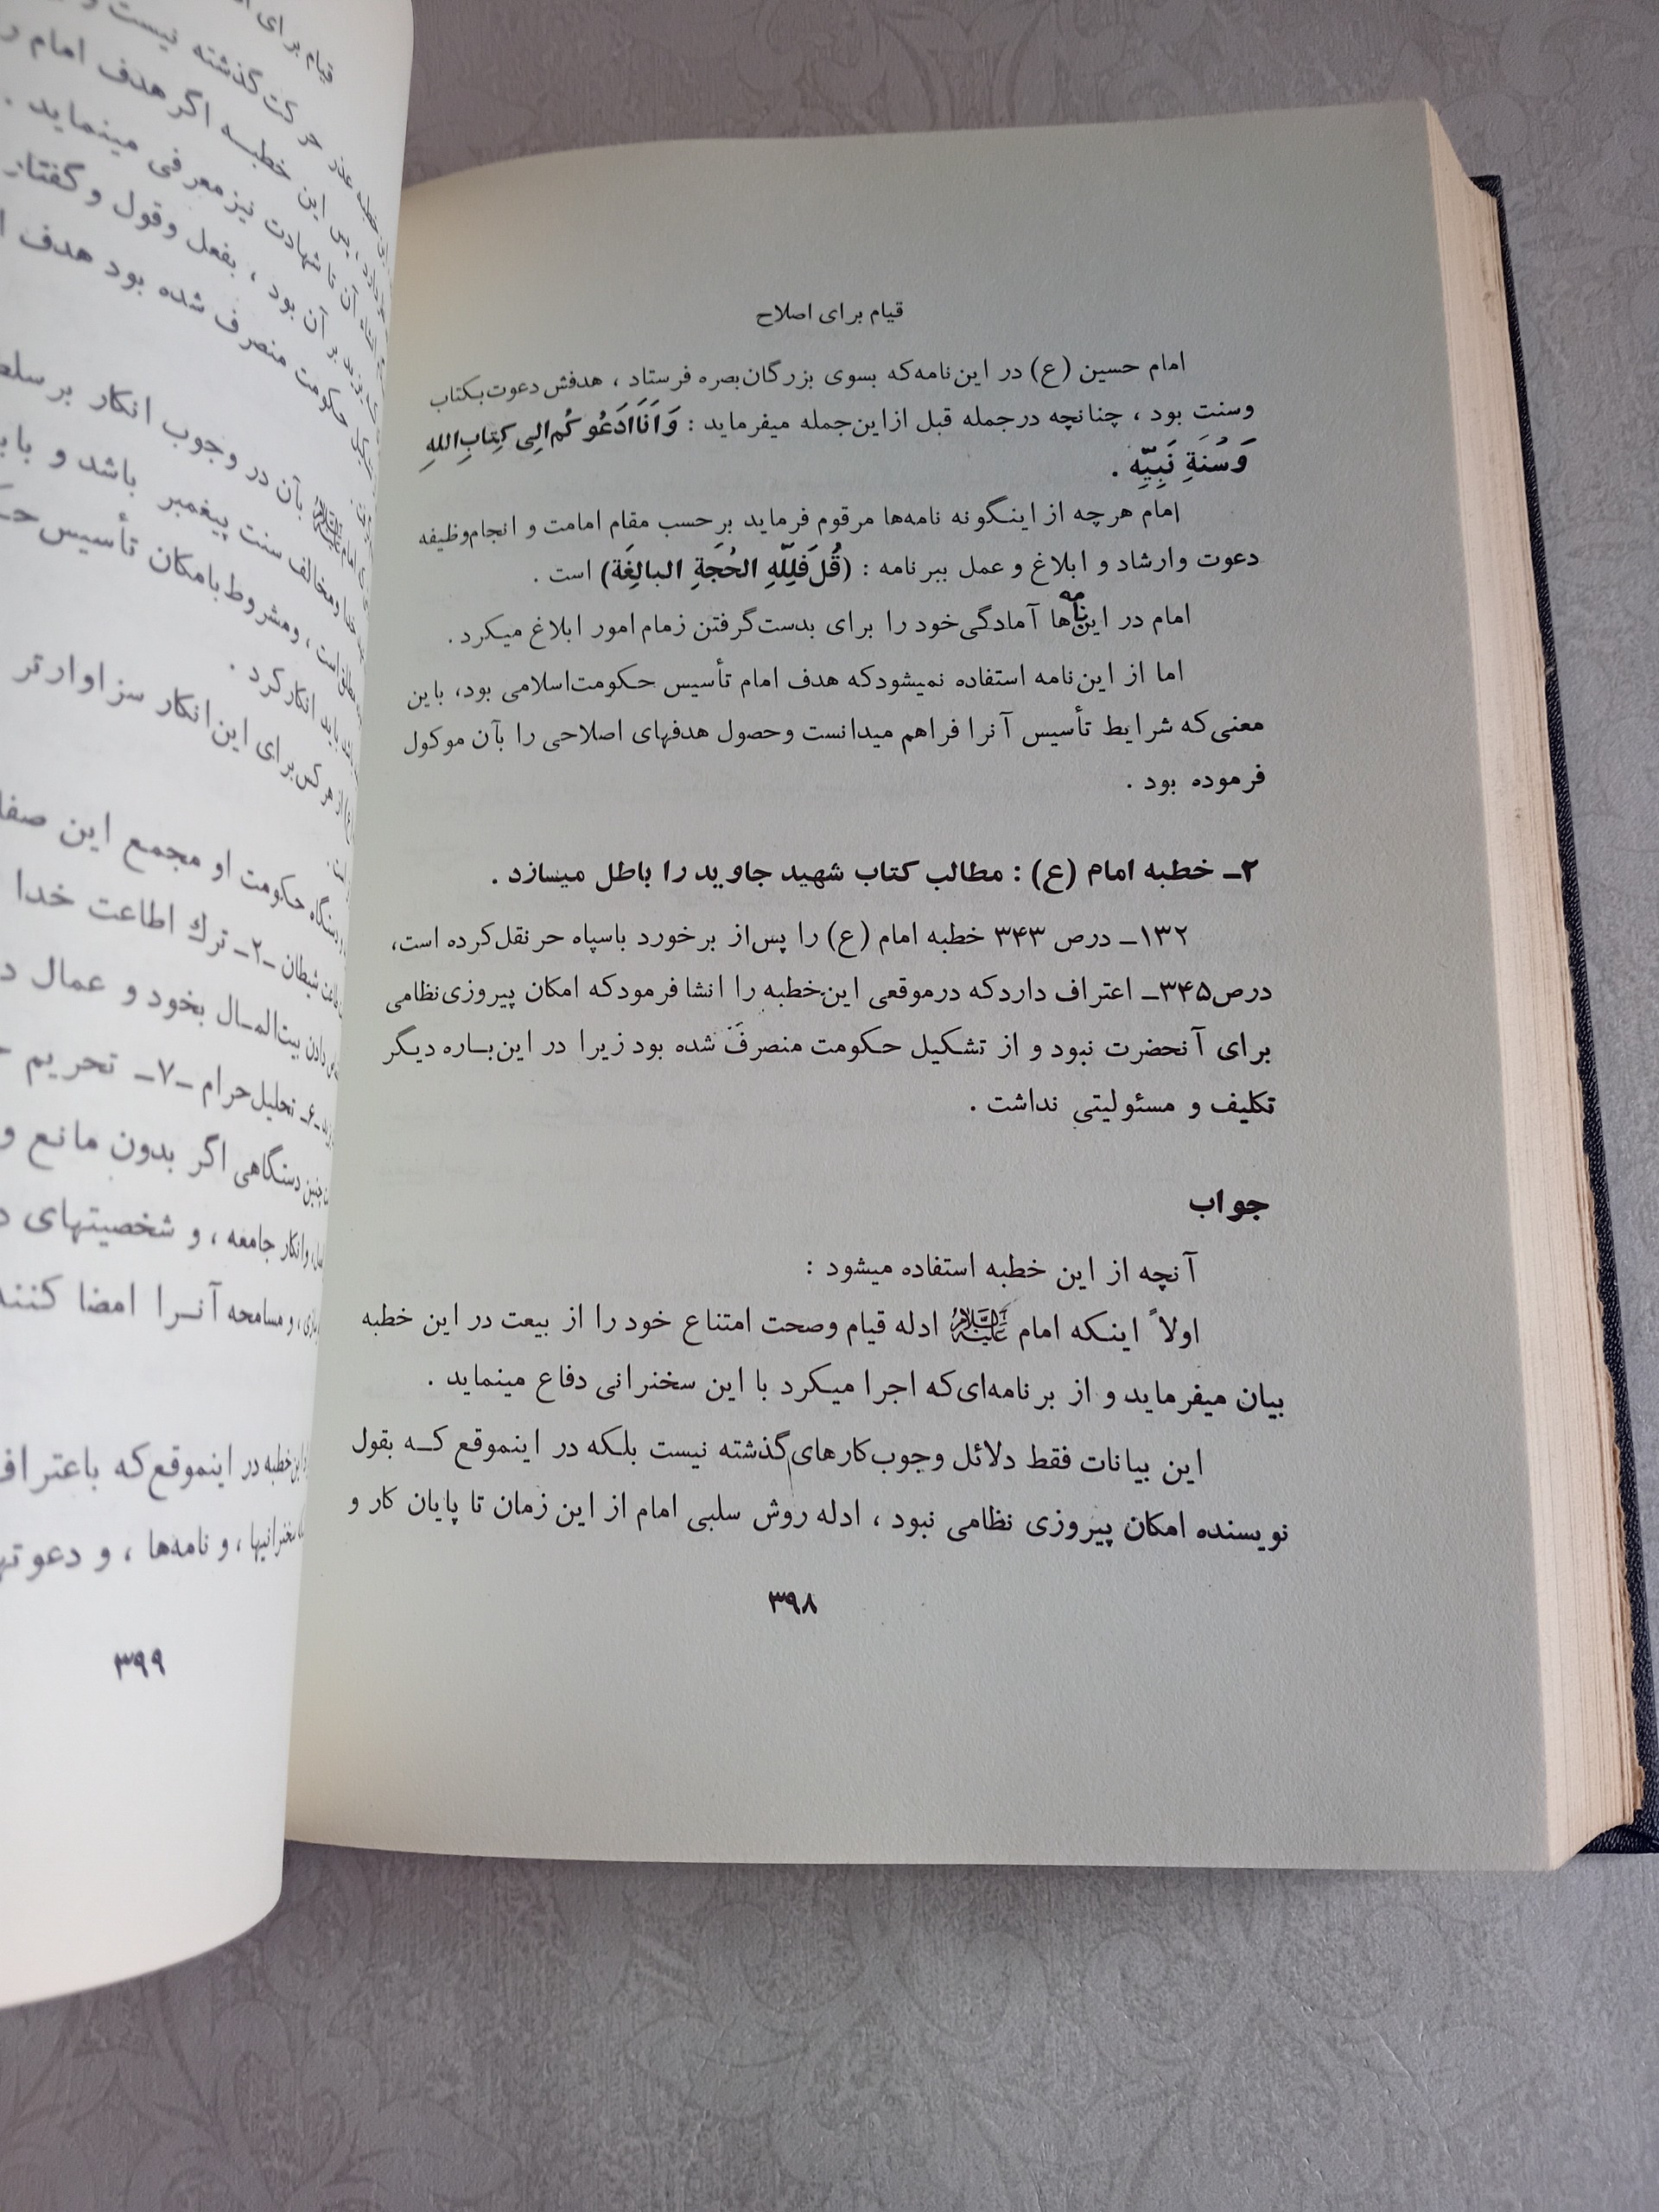 قیام برای اصلاح
امام حسین (ع) در این نامه که بسوی بزرگان بصره فرستاد ، هدفش دعوت بکتاب
وسنت بود ، چنانچه درجمله قبل ازاین جمله میفرماید : وَاَنَا اَدعُوکُم اِلی کِتابِ اللهِ
وَسُنَةِ نَبِیّهِ .
امام هرچه از اینگونه نامه‌ها مرقوم فرماید برحسب مقام امامت و انجام وظیفه
دعوت وارشاد و ابلاغ و عمل ببرنامه : (قُل فَلِلّهِ الحُجَةِ البالِغَة) است .
امام در این نامه‌ها آمادگی خود را برای بدست گرفتن زمام امور ابلاغ میکرد .
اما از این نامه استفاده نمیشود که هدف امام تأسیس حکومت اسلامی بود، باین
معنی که شرایط تأسیس آنرا فراهم میدانست وحصول هدفهای اصلاحی را بآن موکول
فرموده بود .
۲ـ خطبه امام (ع) : مطالب کتاب شهید جاوید را باطل میسازد .
۱۳۲ـ درص ۳۴۳ خطبه امام (ع) را پس از برخورد باسپاه حر نقل کرده است،
درص۳۴۵ـ اعتراف دارد که درموقعی این خطبه را انشا فرمود که امکان پیروزی نظامی
برای آنحضرت نبود و از تشکیل حکومت منصرف شده بود زیرا در این باره دیگر
تکلیف و مسئولیتی نداشت .
جواب
آنچه از این خطبه استفاده میشود :
اولاً اینکه امام علیه‌السلام ادله قیام وصحت امتناع خود را از بیعت در این خطبه
بیان میفرماید و از برنامه‌ای که اجرا میکرد با این سخنرانی دفاع مینماید .
این بیانات فقط دلائل وجوب کارهای گذشته نیست بلکه در اینموقع که بقول
نویسنده امکان پیروزی نظامی نبود ، ادله روش سلبی امام از این زمان تا پایان کار و
۳۹۸
قیام برای
حرکت گذشته نیست
این خطبه اگر هدف امام
آن تا شهادت نیز معرفی مینماید .
بر آن بود ، بفعل وقول و گفتار
حکومت منصرف شده بود هدف
بآن در وجوب انکار بر
خدا ومخالف سنت پیغمبر باشد و
است ، ومشروط بامکان تأسیس
باید انکار کرد .
از هرکس برای این انکار سزاوارتر
حکومت او مجمع این
شیطان ـ۲ـ ترك اطاعت خدا
دادن بیت‌المال بخود و عمال
تحلیل حرام ـ۷ـ تحریم
چنین دستگاهی اگر بدون مانع و
وانکار جامعه ، و شخصیتهای
و مسامحه آنرا امضا کنند
خطبه در اینموقع که باعتراف
سخنرانیها ، و نامه‌ها ، و
۳۹۹